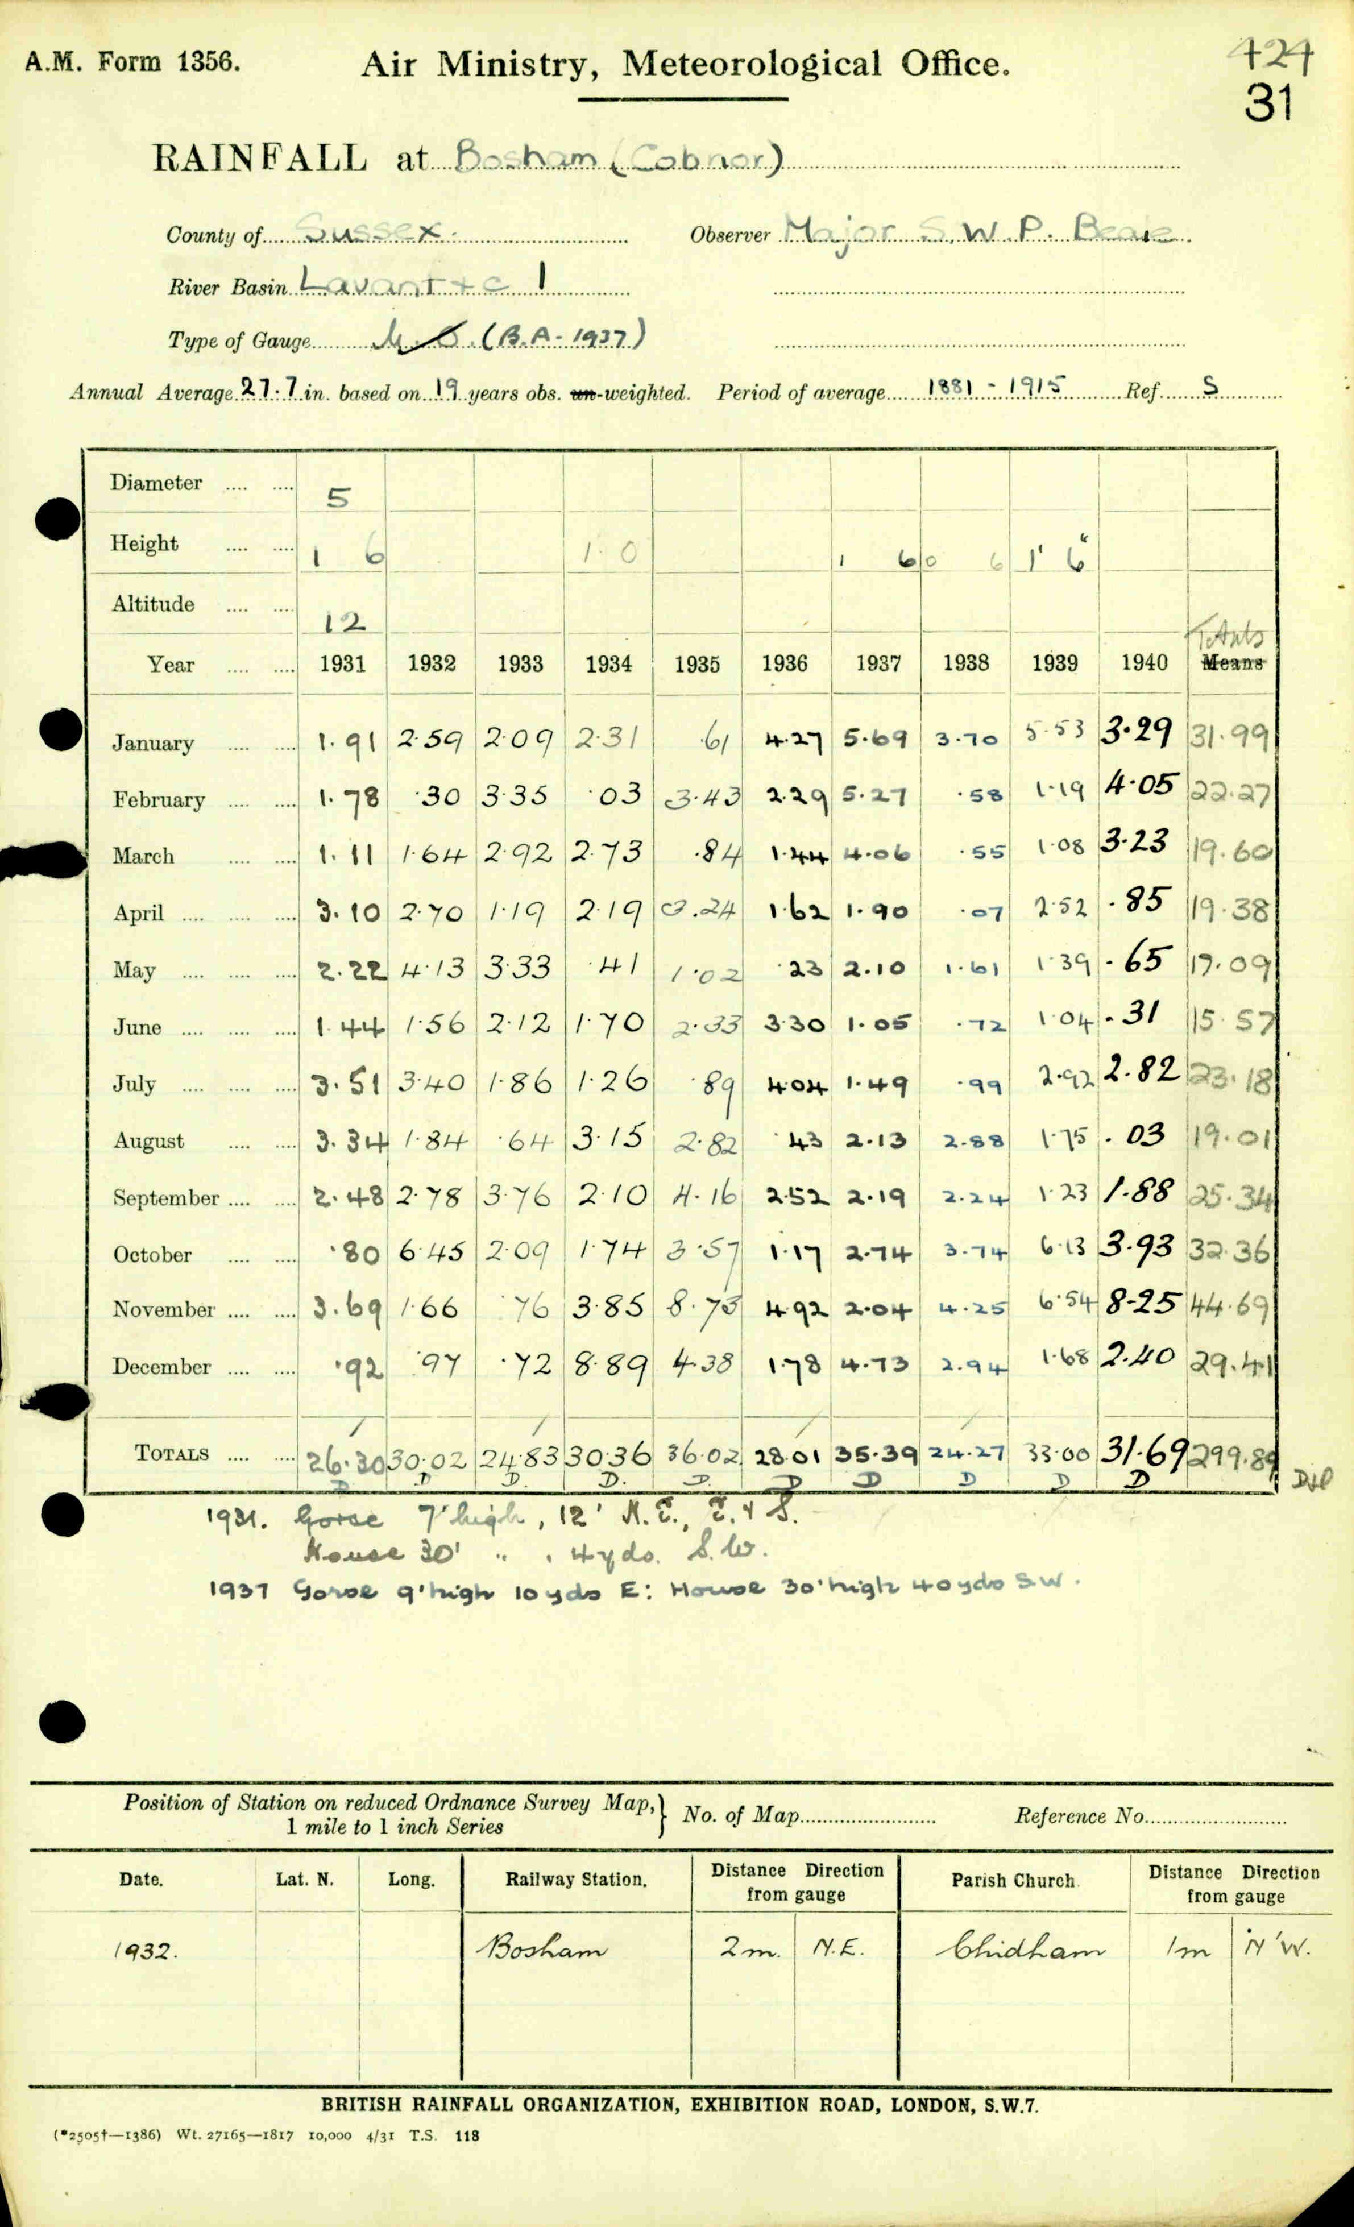 A.M. Form 1356.
Air Ministry, Meteorological Office.
424
31
RAINFALL at Bosham (Cobnor)
County of Sussex. Observer Major S. W. P. Beale
River Basin Lavant + c 1
Type of Gauge M.O. (B.A-1937)
Annual Average 27.7 in. based on 19 years obs. un-weighted. Period of average 1881 - 1915 Ref. S
Diameter 5
Height 1 6 1.0 1 6 0 6 1' 6"
Altitude 12
Totals
Year 1931 1932 1933 1934 1935 1936 1937 1938 1939 1940 Means
January 1.91 2.59 2.09 2.31 .61 4.27 5.69 3.70 5.53 3.29 31.99
February 1.78 .30 3.35 .03 3.43 2.29 5.27 .58 1.19 4.05 22.27
March 1.11 1.64 2.92 2.73 .84 1.44 4.06 .55 1.08 3.23 19.60
April 3.10 2.70 1.19 2.19 3.24 1.62 1.90 .07 2.52 .85 19.38
May 2.22 4.13 3.33 .41 1.02 .23 2.10 1.61 1.39 .65 17.09
June 1.44 1.56 2.12 1.70 2.33 3.30 1.05 .72 1.04 .31 15.57
July 3.51 3.40 1.86 1.26 .89 4.04 1.49 .99 2.92 2.82 23.18
August 3.34 1.84 .64 3.15 2.82 .43 2.13 2.88 1.75 .03 19.01
September 2.48 2.78 3.76 2.10 4.16 2.52 2.19 2.24 1.23 1.88 25.34
October .80 6.45 2.09 1.74 3.57 1.17 2.74 3.74 6.13 3.93 32.36
November 3.69 1.66 .76 3.85 8.73 4.92 2.04 4.25 6.54 8.25 44.69
December .92 .97 .72 8.89 4.38 1.78 4.73 2.94 1.68 2.40 29.41
TOTALS 26.30 30.02 24.83 30.36 36.02 28.01 35.39 24.27 33.00 31.69 299.89
D D D. D. D. D D D D D
1931. Gorse 7' high, 12' N.E., E. & S.
House 30' " , 4 yds. S.W.
1937 Gorse 9' high 10 yds E: House 30' high 40 yds SW.
Position of Station on reduced Ordnance Survey Map, 1 mile to 1 inch Series } No. of Map Reference No.
Date. Lat. N. Long. Railway Station. Distance Direction from gauge Parish Church. Distance Direction from gauge
1932. Bosham 2m. N.E. Chidham 1m N'W.
BRITISH RAINFALL ORGANIZATION, EXHIBITION ROAD, LONDON, S.W.7.
(*2505†—1386) Wt. 27165—1817 10,000 4/31 T.S. 118